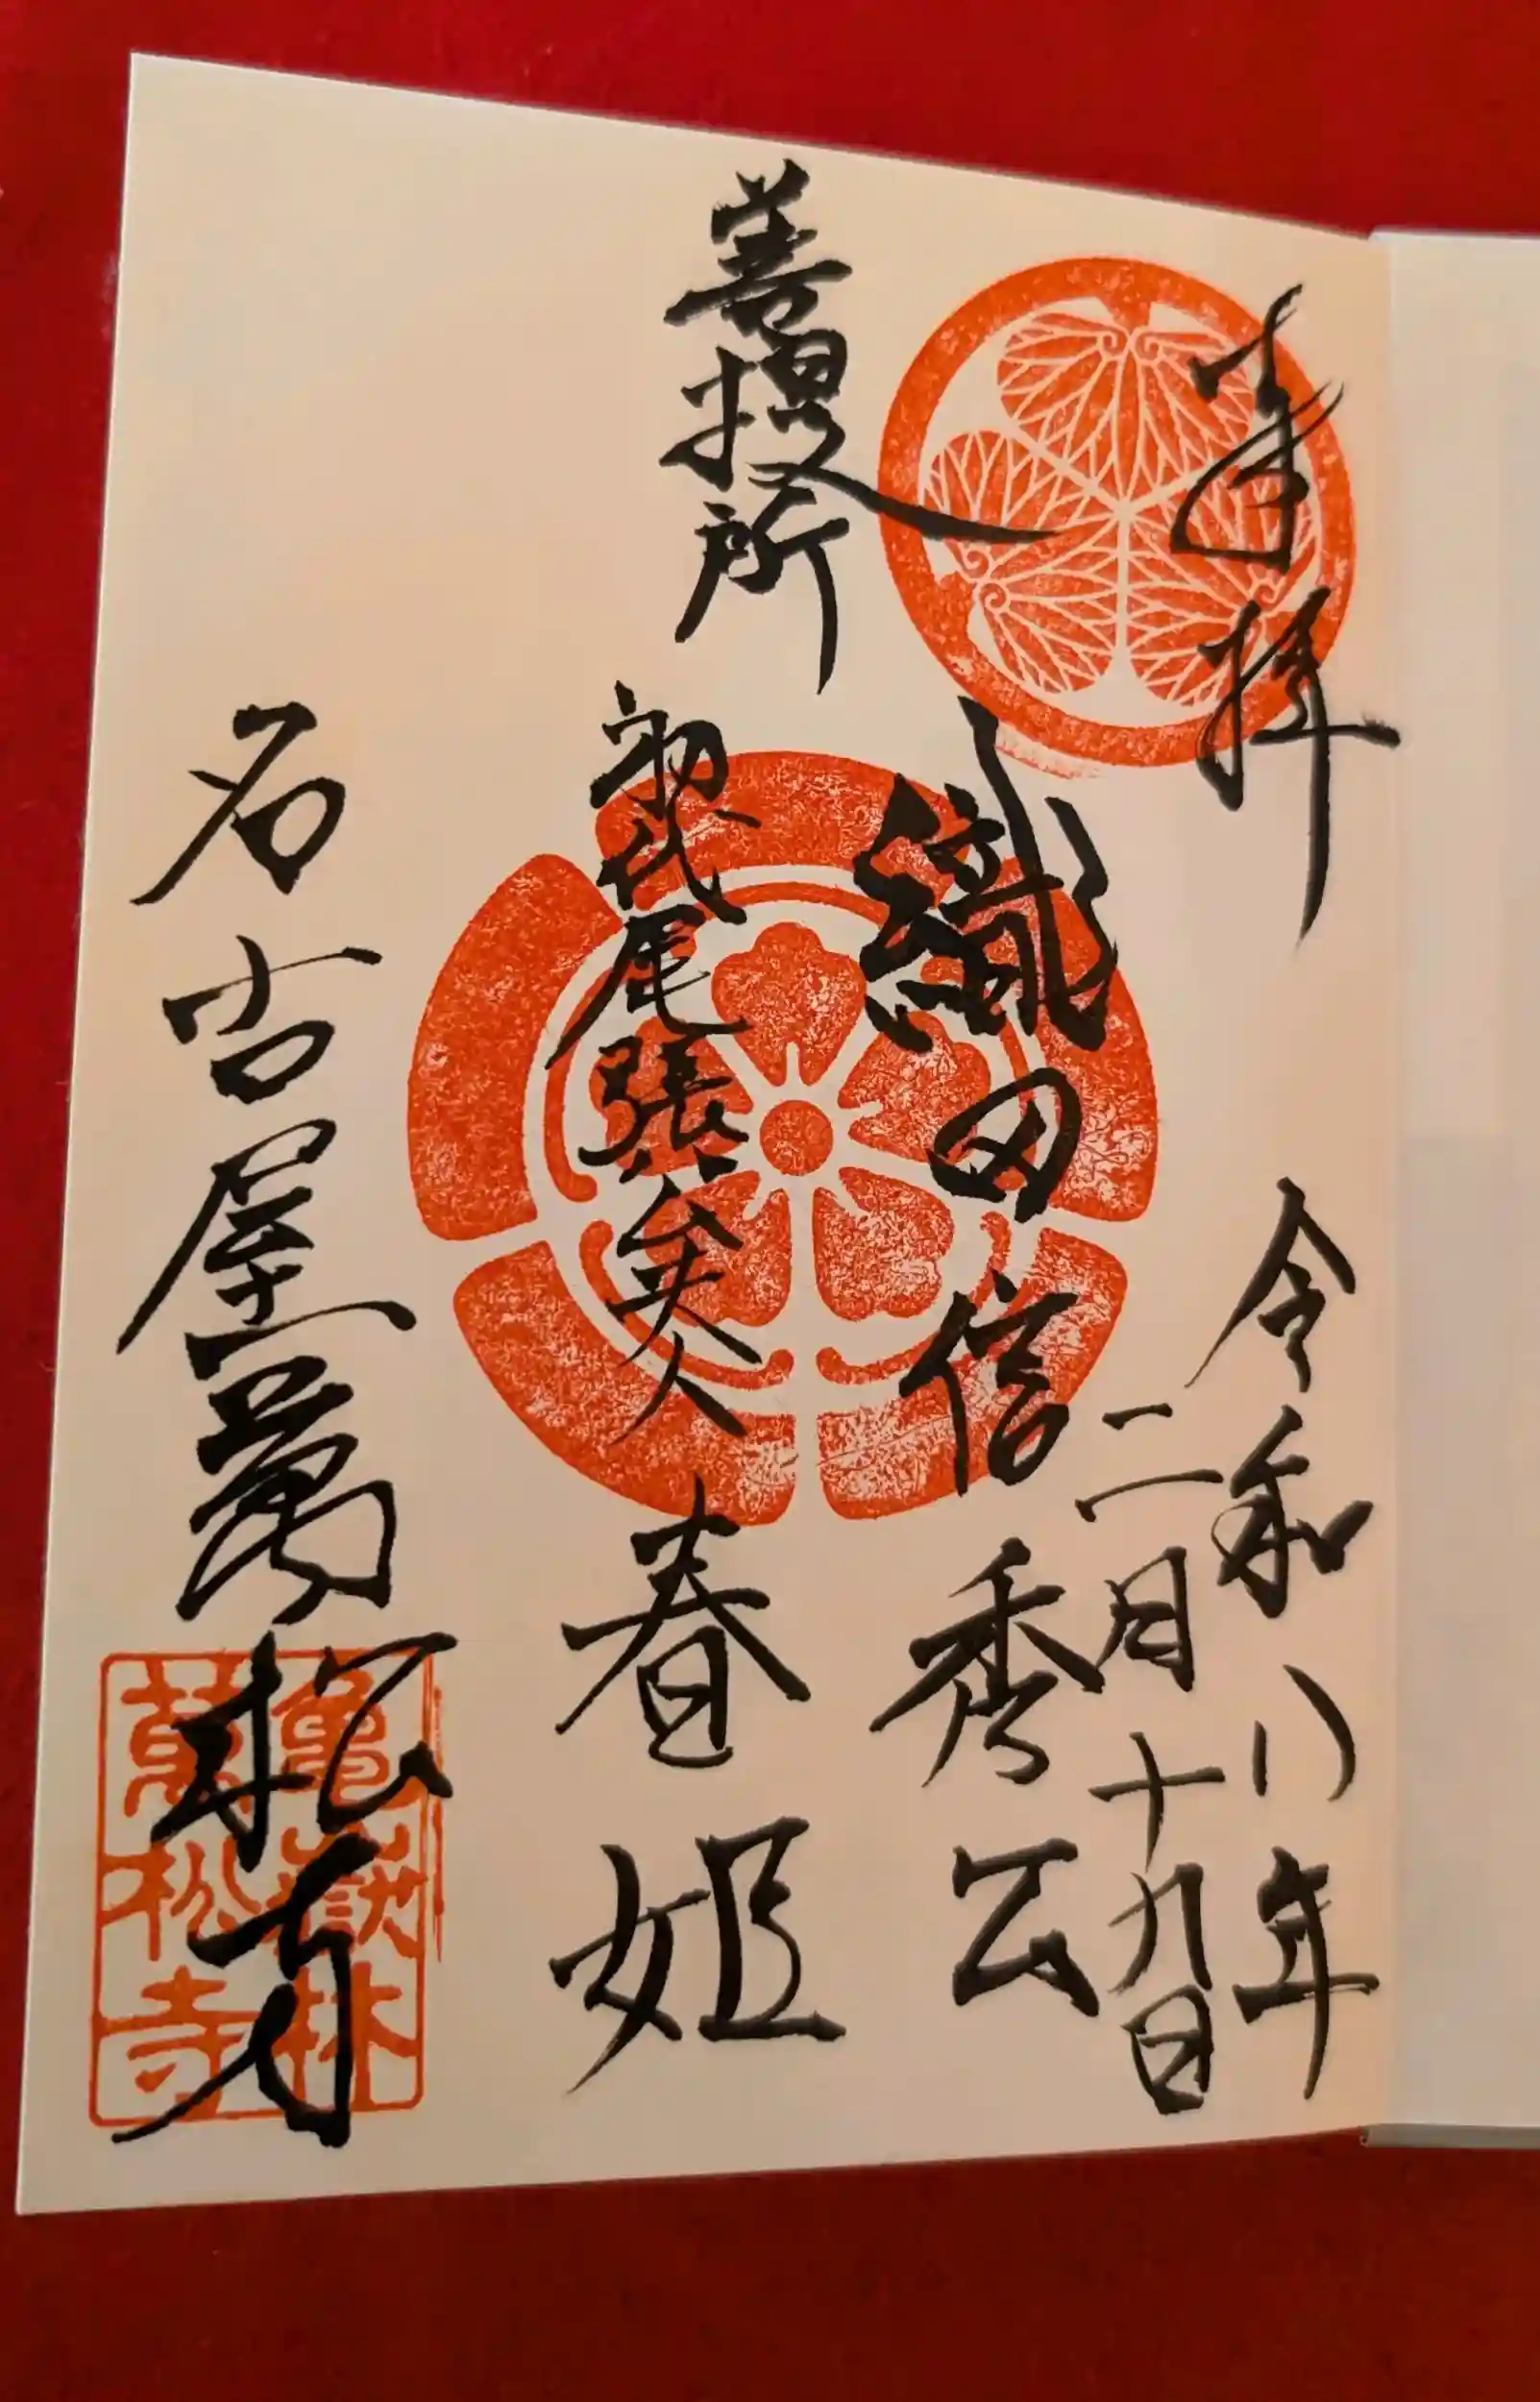 奉拝
令和八年
二月十九日
織田信秀公
菩提所
初代尾張公夫人
春姫
名古屋萬松寺
亀嶽林
萬松寺